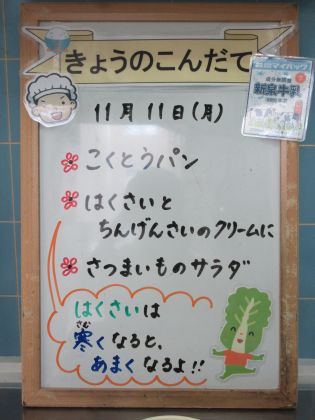 きょうのこんだて
11月11日(月)
こくとうパン
はくさいと
ちんげんさいのクリームに
さつまいものサラダ
はくさいは
寒くなると、
さむ
あまくなるよ!!
成分無調整
新泉牛乳